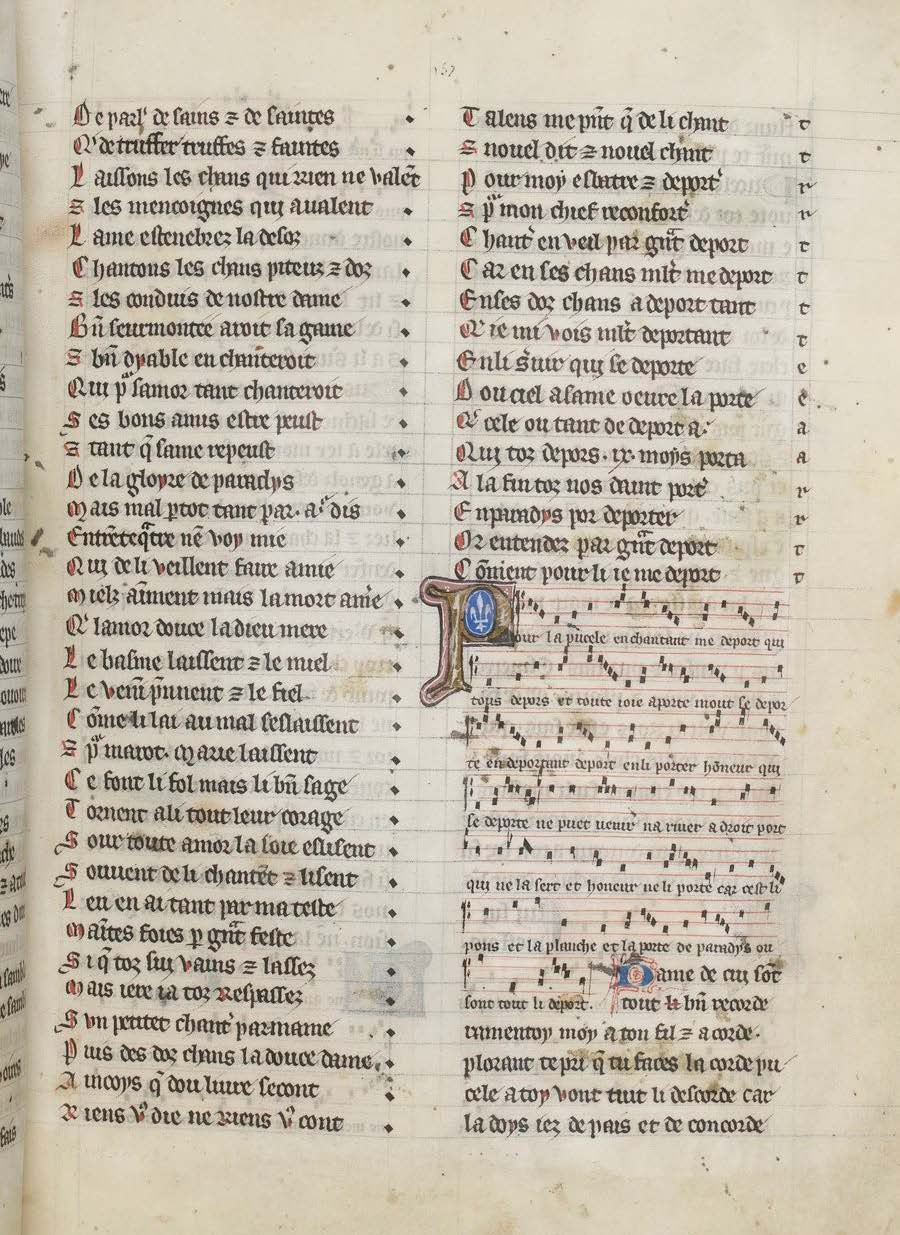 De parl' de sains ⁊ de saintes
Q' de truffer truffes ⁊ faintes
Laissons les chans qui rien ne valēt
⁊ les mencoignes qui aualent
Lame estenebrez la desoz
Chantons les chans piteuz ⁊ doz
⁊ les conduis de nostre dame
Bn̄ seurmontee aroit sa game
⁊ bn̄ dyable enchanteroit
Qui pͬ samor tant chanteroit
Ses bons amis estre peust
⁊ tant q̄ same repeust
De la gloyre de paradys
Mais mal ptot tant par. a. dis
Qui de li veillent faire amie
Mielz aiment mais la mort am'e
Q' lamor douce la dieu mere
Le basme laissent ⁊ le miel
Le veni' p̄nnent ⁊ le fiel
Cōme li lai au mal seslaissent
⁊ pͬ marot. Marie laissent
Ce font li fol mais li bn̄ sage
Tornent a li tout leur corage
Sour toute amor la soie eslisent
Souuent de li chantēt ⁊ lisent
Leu en ai tant par ma teste
Maītes foies p gn̄t feste
Si q̄ toz sui vains ⁊ lassez
Mais iere ia toz Respassez
S vn petitet chant' parmame
Puis des doz chans la douce dame
Aincoys q̄ dou liure secont
Riens v' die ne Riens v' cont
Talens me pn̄t q̄ de li chant
⁊ nouel dit ⁊ nouel chant
Pour moy esbatre ⁊ deport'
⁊ pͬ mon chief reconfort'
Chant' en veil par gn̄t deport
Car en ses chans ml̄t me deport
En ses doz chans a deport tant
Q' ie mi vois ml̄t deportant
En li s'uir qui se deporte
Dou ciel a same oeure la porte
Q' cele ou tant de deport a
Qui toz depors .ix. moys porta
A la fin toz nos daint port'
En paradys por deporter
Or entendez par gn̄t deport
Cōment pour li ie me deport
Pour la pucele en chantant me deport qui
touz depors et toute ioie aporte mout se depor
te en deportant deport en li porter hōneur qui
se deporte ne puet uenir na riuer a droit port
qui ne la sert et honeur ne li porte car cest li
pons et la planche et la porte de paradys ou
sont tout li deport. Dame de cui sōt
tout li bn̄ recorde
ramentoy moy a ton fil ⁊ acorde.
plorant te pri q̄ tu faces la corde pu
cele a toy vont tuit li descorde car
la doys iez de pais et de concorde